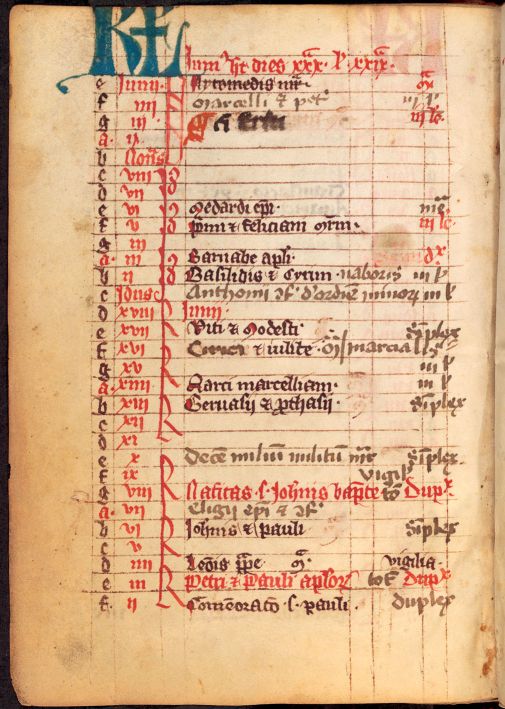 KL Iuni' ht dies xxx. l' xxix.
e Iunii N Nycomedis mr. m
f iiii Marcelli & pet' iii l'
g iii iii lc
a. ii
b Nonas
c viii Id
d vii
e vi Id Medardi epi me
f v Id Primi & feliciani mrm. iii lc
g iiii
a. iii Id Barnabe apli. dx
b ii Id Basilidis & Cyrini naboris iii l'
c Idus Anthonii 9f. d'ordine minorum iii l'
d xviii K Iunii
e xvii K Viti & Modesti. Siplex
f xvi K Cirici & iulite. marcialis
g xv iii l'
a. xiiii K Marci marcelliani. iii l'
b xiii K Geruasii & Pthasii. Siplex
c xii K
d xi
e x Dece milium militum mr Siplex.
f ix K vigil'
g viii K Natiuitas s. Iohnis bapte to Dupx.
a. vii Eligii epi & 9f.
b vi K Iohnis & pauli Siplex
c v
d iiii K Leonis ppe m vigilia.
e iii K Petri & Pauli aplor tot dupx
f. ii Comemoratio s. pauli. duplex